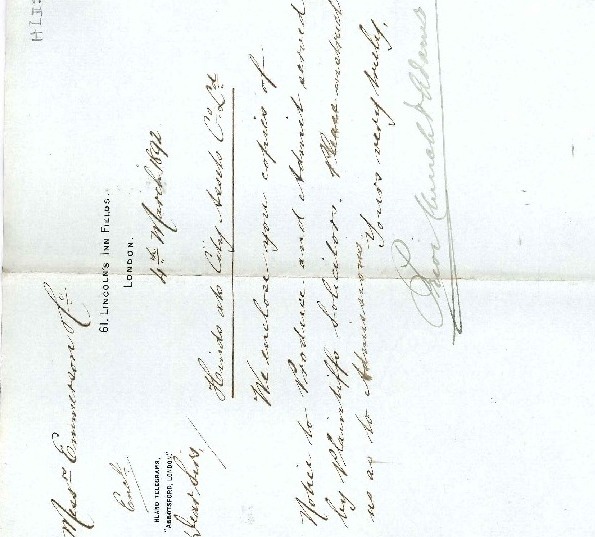 61, LINCOLN'S INN FIELDS.
LONDON.
4th March 1892
Messrs Emmerson &c
Encl
INLAND TELEGRAMS,
"ABBOTSFORD, LONDON."
Dear Sirs,
Hinds ats City Assets Co Ld
We enclose you copies of
Notice to Produce and Admit served
by Plaintiffs Solicitors. Please instruct
us as to Admissions.
Yours very truly,
& Adams